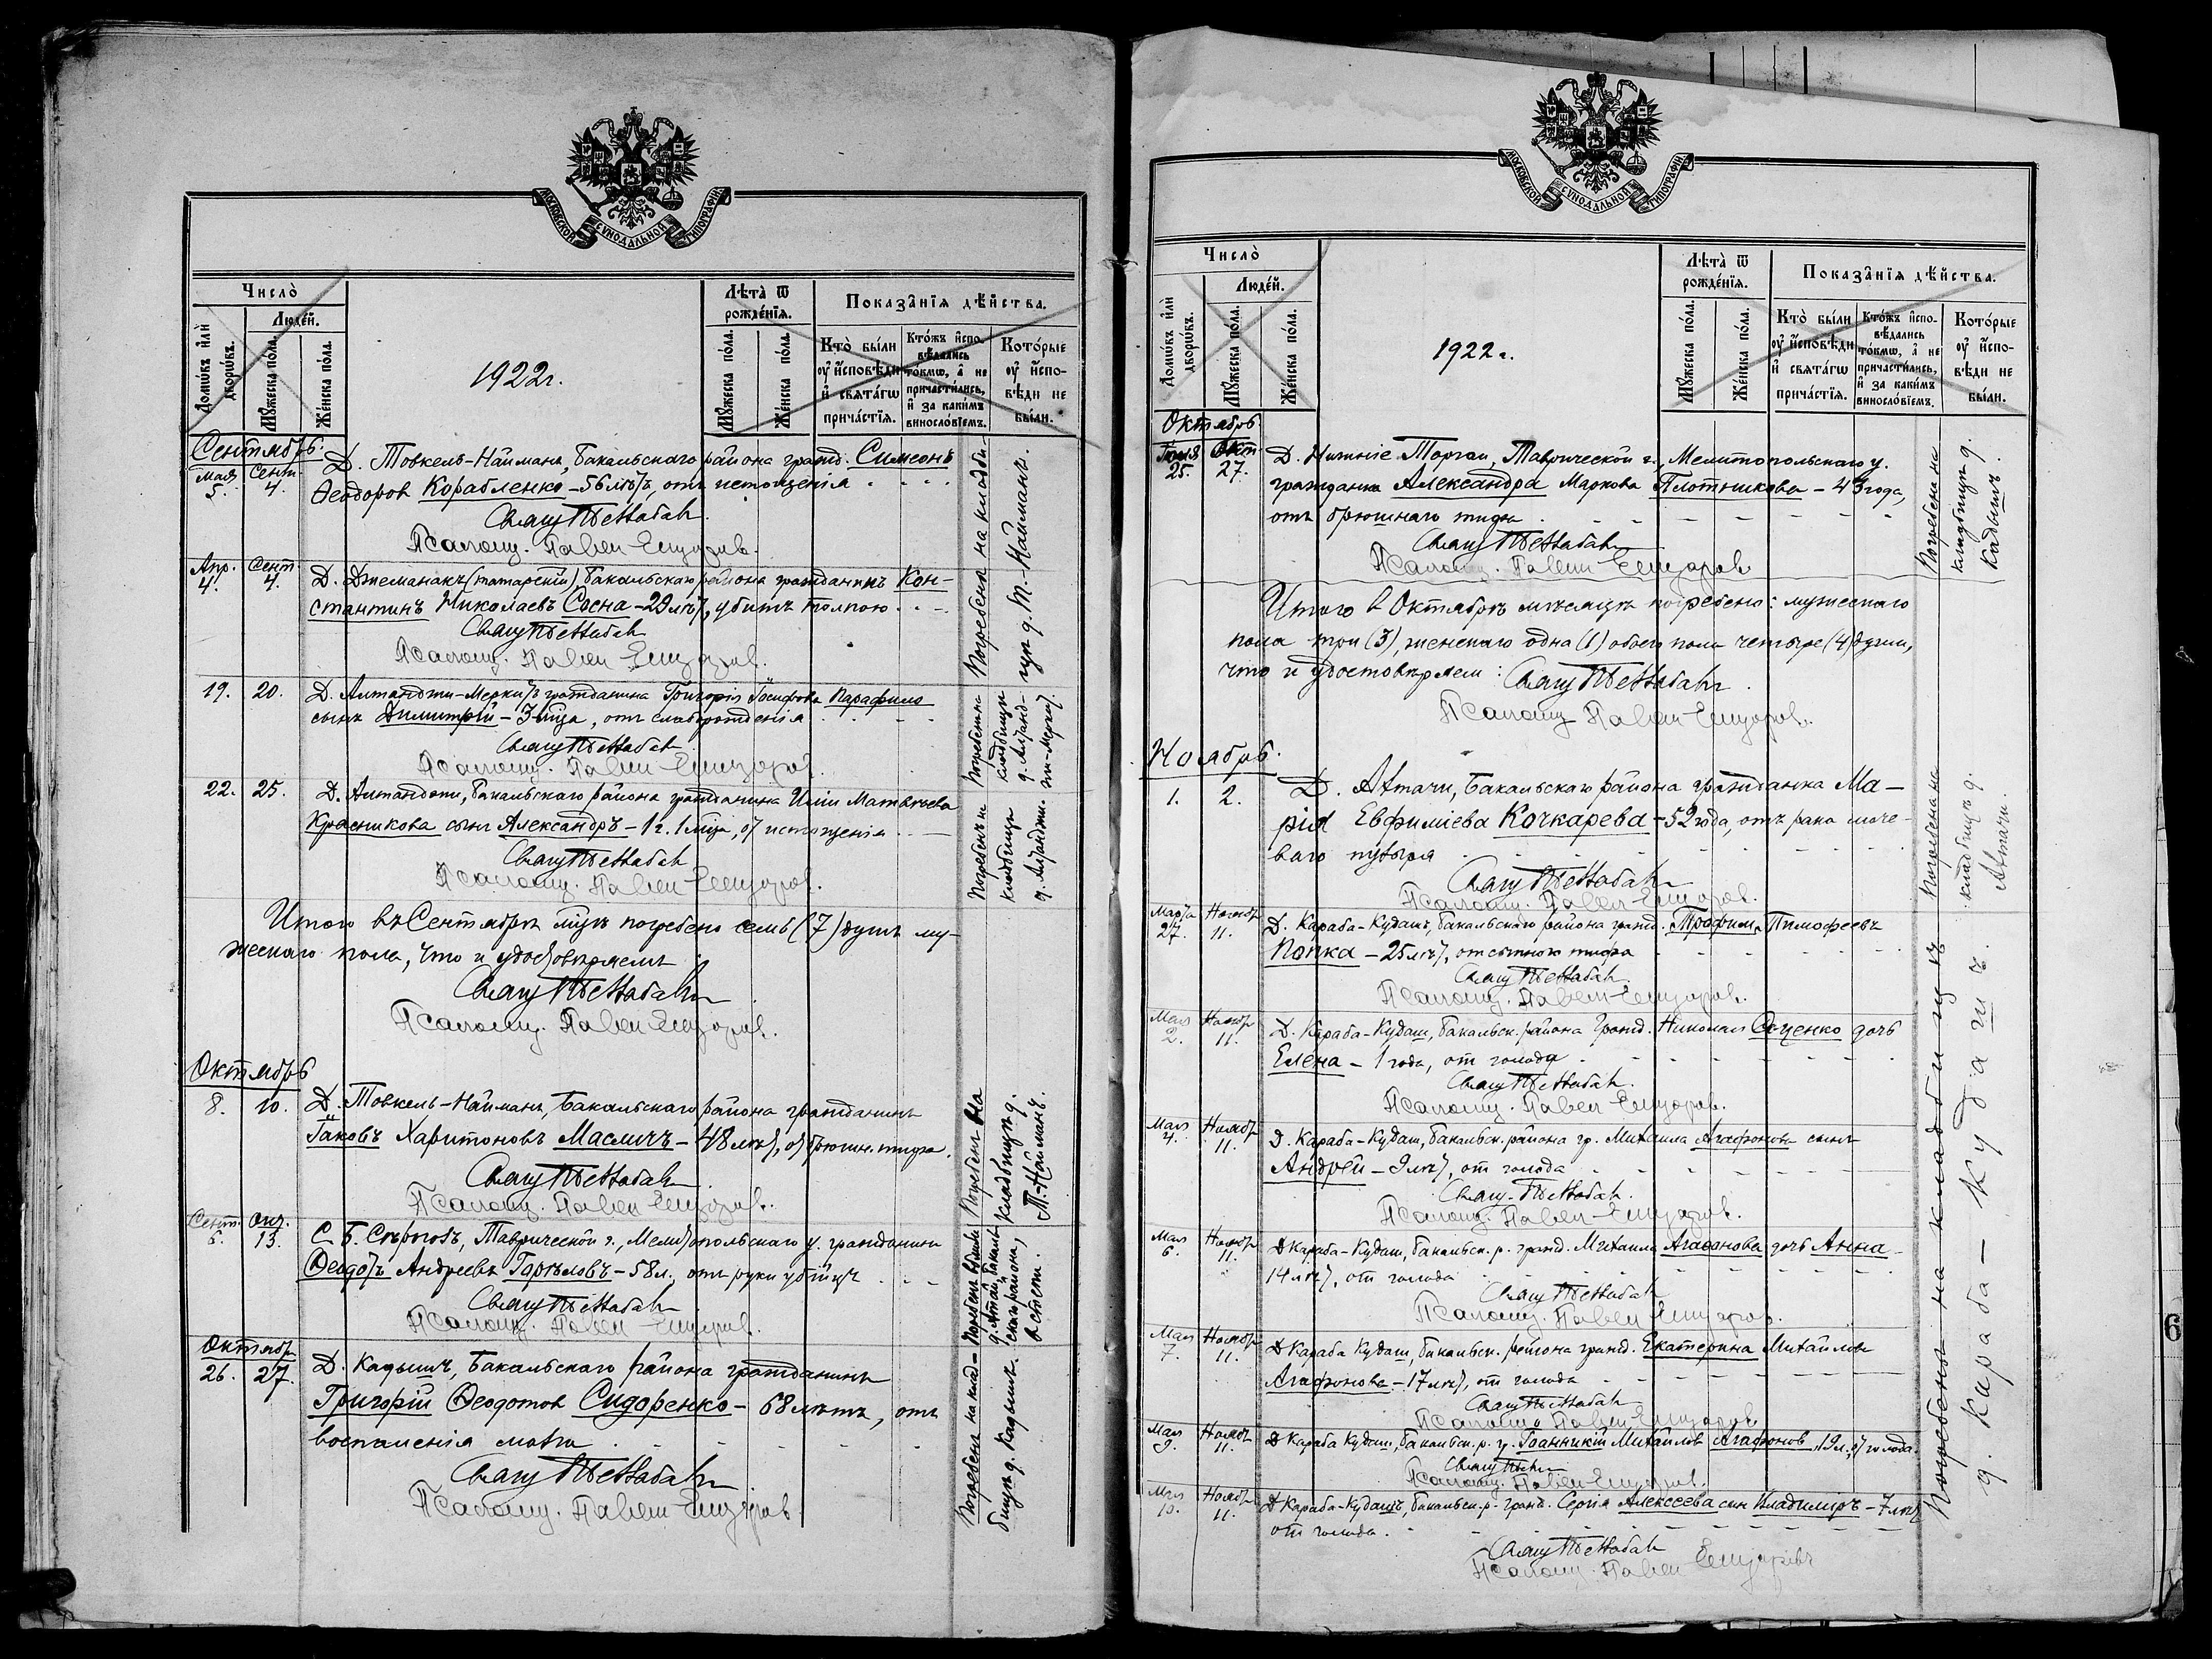 МОСКОВСКОЙ СУНОДАЛЬНОЙ ТИПОГРАФІИ
Число̀
Людéй.
Домѡ́въ и҆лѝ дворѡ́въ.
Мꙋ́жеска по́ла.
Же́нска по́ла.
1922г.
Лѣта̀ ѿ рожде́нїѧ.
Мꙋ́жеска по́ла.
Же́нска по́ла.
Показа̑нїѧ дѣ́йства.
Кто̀ бы́ли ᲂу҆ и҆сповѣди и҆ свѧта́гѡ прича́стїѧ.
Кто́жъ и҆сповѣ́дались то́кмѡ, а҆ не причасти́лись, и҆ за каки́мъ винословїемъ.
Кото́рые ᲂу҆ и҆сповѣди не бы́ли.
Сентябрь.
Мая 5. Сент. 4. Д. Товкель-Найманъ, Бакальскаго района гражд. Симеонъ
Ѳеодоров Корабленко – 56 лѣтъ, отъ истощенія
Свящ.
Псаломщ. Павел
Апр. 4. Сент. 4. Д. Джеманакъ (татарскій) Бакальскаго района гражданинъ Кон-
стантинъ Николаевъ Сосна – 29 лѣтъ, убитъ толпою
Свящ.
Псаломщ. Павел
Погребены на кладби-
щѣ д. Т.-Найманъ.
19. 20. Д. Алтанджи-Меркитъ гражданина Григорія Іосифова Парафило
сынъ Димитрій – 3 м-ца, отъ слаборожденія
Свящ.
Псаломщ. Павел
22. 25. Д. Алтанджи, Бакальскаго района гражданина Иліи Матвѣева
Красникова сынъ Александръ – 1 г. 1 м-ца, от истощенія
Свящ.
Псаломщ. Павел
Итого въ Сентябрѣ м-цѣ погребено семь (7) душъ му-
жескаго пола, что и удостовѣряемъ
Свящ.
Псаломщ. Павел
Октябрь
8. 10. Д. Товкель-Найманъ, Бакальскаго района гражданинъ
Іаковъ Харитоновъ Масличъ – 48 лѣт, от брюшн. тифа.
Свящ.
Псаломщ. Павел
Погребен на
кладбищѣ д.
Т.-Найманъ.
Сент. 6. Окт. 13. С. Б. Сѣрогозъ, Таврической г., Мелитопольскаго у. гражданинъ
Ѳеодотъ Андреевъ – 58 л., отъ руки убійцъ
Свящ.
Псаломщ. Павел
Октябр
26. 27. Д. Кадышъ, Бакальскаго района гражданинъ
Григорій Ѳеодотов Сидоренко – 68 лѣтъ, отъ
воспаленія мозга
Свящ.
Псаломщ. Павел
Погребенъ на клад-
бищѣ д. Кадышъ.
МОСКОВСКОЙ СУНОДАЛЬНОЙ ТИПОГРАФІИ
Число̀
Людéй.
Домѡ́въ и҆лѝ дворѡ́въ.
Мꙋ́жеска по́ла.
Же́нска по́ла.
1922г.
Лѣта̀ ѿ рожде́нїѧ.
Мꙋ́жеска по́ла.
Же́нска по́ла.
Показа̑нїѧ дѣ́йства.
Кто̀ бы́ли ᲂу҆ и҆сповѣди и҆ свѧта́гѡ прича́стїѧ.
Кто́жъ и҆сповѣ́дались то́кмѡ, а҆ не причасти́лись, и҆ за каки́мъ винословїемъ.
Кото́рые ᲂу҆ и҆сповѣди не бы́ли.
Октябрь.
25. Окт 27. Д. Нижніе Торгаи, Таврической г., Мелитопольскаго у.
гражданка Александра Маркова Плотникова – 43 года,
отъ брюшнаго тифа
Свящ.
Псаломщ. Павел
Погребена на
кладбищѣ д.
Кадышъ.
Итого в Октябрѣ мѣсяцѣ погребено: мужескаго
пола три (3), женскаго одна (1) обоего пола четыре (4) души,
что и удостовѣряем:
Свящ.
Псаломщ. Павел
Ноябрь.
1. 2. Д. Атмачи, Бакальскаго района гражданка Ма-
рія Евфиміева Кочкарева – 52 года, отъ рака моче-
ваго пузыря
Свящ.
Псаломщ. Павел
Погребена на
кладбищѣ д.
Атмачи.
Марта 27. Ноябр 11. Д. Караба-Кудашъ, Бакальскаго района гражд. Трофимъ Тимофеевъ
Попка – 25 лѣт, от сыпного тифа
Свящ.
Псаломщ. Павел
Мая 2. Ноябр 11. Д. Караба-Кудаш, Бакальск. района Гражд. Николая Саценко дочь
Елена – 1 года, от голода
Свящ.
Псаломщ. Павел
Мая 4. Ноябр 11. Д. Караба-Кудаш, Бакальск. района гр. Михаила Агафонова сынъ
Андрей – 9 лѣт, от голода
Свящ.
Псаломщ. Павел
Мая 6. Ноябр 11. Д Караба-Кудаш, Бакальск. р. гражд. Михаила Агафонова дочь Анна
14 лѣт, от голода
Свящ.
Псаломщ. Павел
Мая 7. Ноябр 11. Д Караба Кудаш, Бакальск. района гражд. Екатерина Михайлова
Агафонова – 17 лѣт, от голода
Свящ.
Псаломщ. Павел
Мая 9. Ноябр 11. Д Караба Кудаш, Бакальск. р. гр. Іоанникій Михайлов Агафонов, 19 л., от голода.
Свящ.
Псаломщ. Павел
Мая 10. Ноябр 11. Д Караба-Кудашъ, Бакальск. р. гражд. Сергія Алексеева сын Владиміръ – 7 лѣт
от голода.
Свящ.
Псаломщ. Павел
Погребены на кладбищѣ
д. Караба-Кудашъ.
6